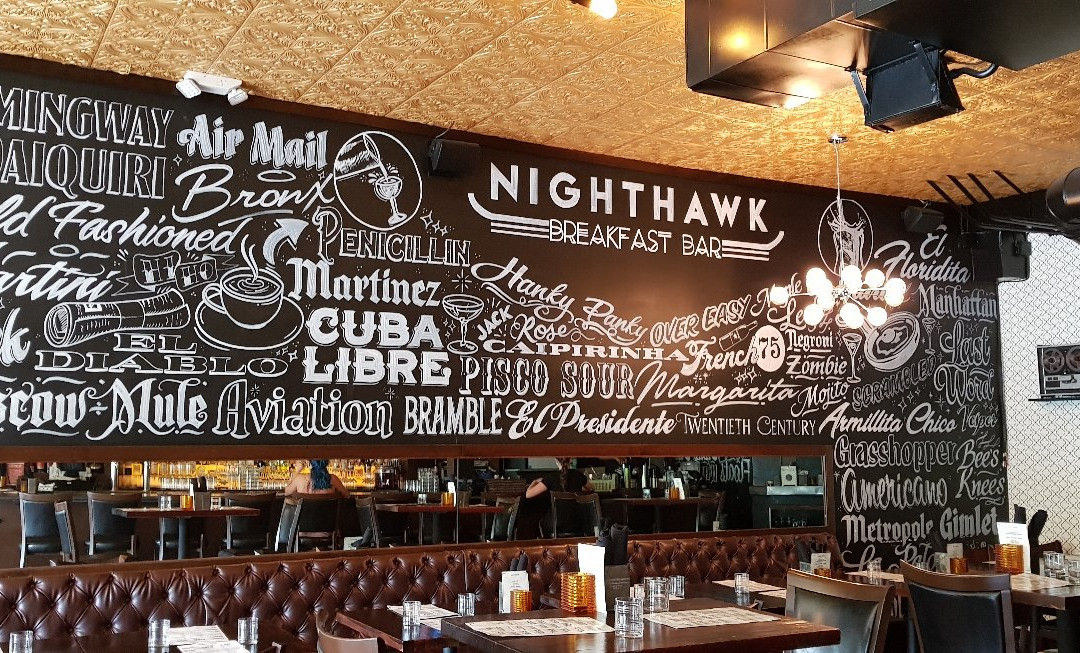 MINGWAY
DAIQUIRI
Air Mail
Bronx
ld Fashioned
PENICILLIN
artini
Martinez
CUBA
LIBRE
EL
DIABLO
scow-Mule
Aviation
NIGHTHAWK
BREAKFAST BAR
Hanky Panky
JACK
Rose
CAIPIRINHA
PISCO SOUR
BRAMBLE
El Presidente
OVER EASY
French 75
Margarita
TWENTIETH CENTURY
Negroni
Zombie
Mojito
SCRAMBLED
Armillita Chico
El
Floridita
Manhattan
Last
Word
Grasshopper
Bee's
Knees
Americano
Metropole
Gimlet